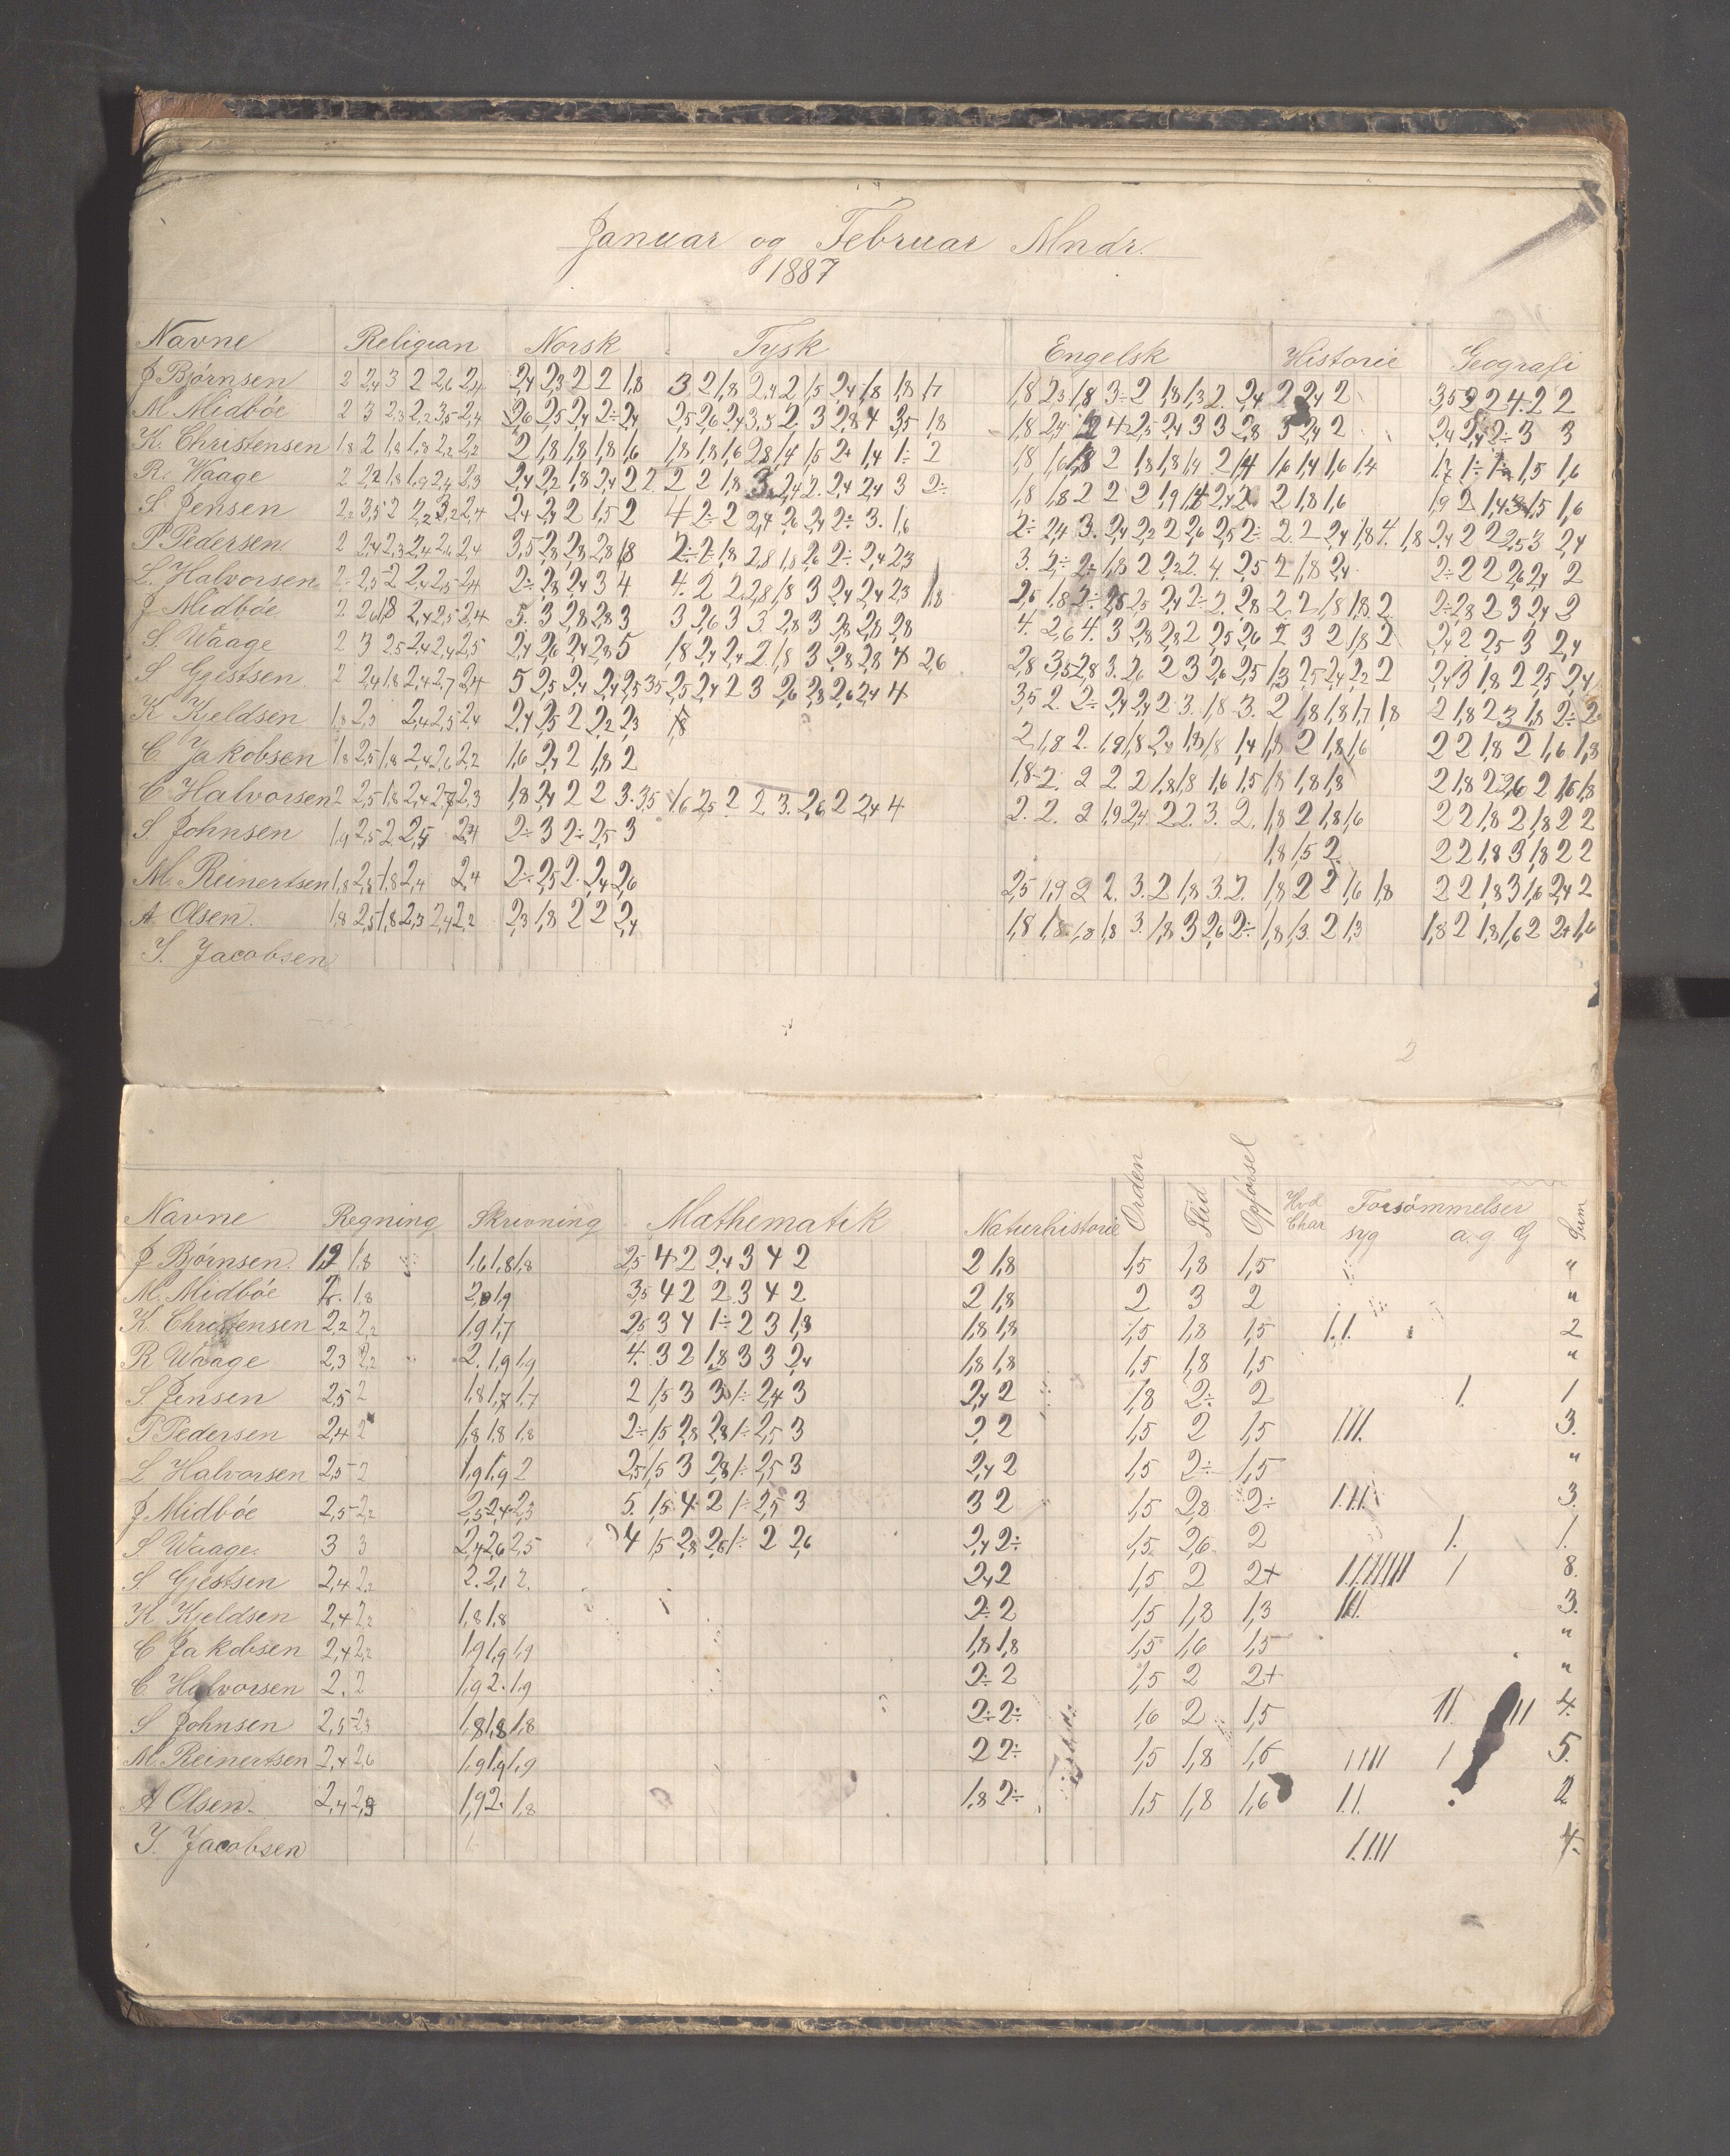 Januar og Februar Mndr.
1887
Navne Religion Norsk Tysk Engelsk Historie Geografi
J Bjørnsen 2 2,4 3 2 2,6 2,4 2,4 2,3 2 2 1,8 3 2 1,8 2,4 2 1,5 2,4 1,8 1,8 1,7 1,8 2,3 1,8 3÷ 2 1,8 1,3 2. 2,4 2 2,4 2 3,5 2 2 4. 2 2
M. Midbøe 2 3 2,3 2,2 3,5 2,4 2,6 2,5 2,4 2÷ 2,4 2,5 2,6 2,4 3,5 2. 3 2,8 4 3,5 1,8 1,8 2,4 2 4 2,5 2,4 3 3 2,8 3 2,4 2 2,4 2,4 2÷ 3 3
K. Christensen 1,8 2 1,8 1,8 2,2 2,2 2 1,8 1,8 1,8 1,6 1,8 1,8 1,6 2,8 1,4 1,5 2+ 1,4 1÷ 2 1,8 1,6 1,8 2 1,8 1,8 1,4 2 1,4 1,6 1,4 1,6 1,4 1,7 1÷ 1÷ 1,5 1,6
R. Waage 2 2,2 1,8 1,9 2,4 2,3 2,4 2,2 1,8 2,4 2 2. 2 2 1,8 3. 2,4 2. 2,4 2,4 3 2÷ 1,8 1,8 2 2 2 1,9 1,4 2,4 2. 2 1,8 1,6 1,9 2 1,4 3 1,5 1,6
S. Jensen 2,2 3,5 2 2,2 3,2 2,4 2,4 2,4 2 1,5 2 4 2÷ 2 2,4 2,6 2,4 2÷ 3. 1,6 2÷ 2,4 3. 2,4 2,2 2 2,6 2,5 2÷ 2. 2 2,4 1,8 4. 1,8 2,4 2 2 2,5 3 2,4
P Pedersen 2 2,4 2,3 2,4 2,6 2,4 3,5 2,8 2,8 2,8 1,8 2÷ 2÷ 1,8 2,8 1,8 2,6 2÷ 2,4 2,3 3. 2÷ 2÷ 1,8 2 2,2 2. 4. 2,5 2 1,8 2,4 2÷ 2 2 2,6 2,4 2
L. Halvorsen 2÷ 2,3 2 2,4 2,5 2,4 2÷ 2,8 2,4 3 4 4. 2 2 2,8 1,8 3 2,4 2,4 2,3 1,8 2,5 1,8 2÷ 2,8 2,5 2,4 2÷ 2. 2,8 2 2 1,8 1,8 2 2÷ 2,8 2 3 2,4 2
J Midbøe 2 2,6 1,8 2,4 2,5 2,4 5. 3 2,8 2,8 3 3 2,6 3 3 2,8 3 2,8 2,8 2,8 4. 2,6 4. 3 2,8 2,8 2 2,5 2,6 2 3 2 1,8 2 2,4 2 2,5 3 2,4
S. Waage 2 3 2,5 2,4 2,4 2,5 2,4 2,6 2,4 2,8 5 1,8 2,4 2,4 2. 1,8 3 2,8 2,8 4 2,6 2,8 3,5 2,8 3. 2,6 2 3 2,6 2,5 1,3 2,5 2,4 2,2 2 2,4 3 1,8 2 2,5 2,4
S Gjestsen 2 2,4 1,8 2,4 2,7 2,4 5 2,5 2,4 2,4 2,5 3,5 2,5 2,4 2 3 2,6 2,8 2,6 2,4 4 3,5 2. 2÷ 2,4 2,4 2 3. 1,8 3. 2 1,8 1,8 1,7 1,8 2 1,8 2 3 1,8 2÷ 2
K Kjeldsen 1,8 2,3 2,4 2,5 2,4 2,4 2,5 2 2,2 2,3 1,8 2 1,8 2. 1,9 1,8 2,4 1,8 1,8 1,4 1,8 2 1,8 1,6 2 2 1,8 2 1,6 1,8
C. Jakobsen 1,8 2,5 1,8 2,4 2,6 2,2 1,6 2,4 2 1,8 2 1,8 2. 2 2 2 1,8 1,8 1,6 1,5 1,8 1,8 1,8 2 1,8 2 2,6 2 1,6 1,8
C Halvorsen 2 2,5 1,8 2,4 2,7 2,3 1,8 2,4 2 2 3. 3,5 1,6 2,5 2 2 3. 2,6 2 2,4 4 2. 2. 2 1,9 2,4 2 2. 3. 2. 1,8 2 1,8 1,6 2 2 1,8 2 1,8 2 2
S. Johnsen 1,9 2,5 2 2,5 2,4 2÷ 3 2÷ 2,5 3 1,8 1,5 2. 2 2 1,8 3 1,8 2 2
M. Reinertsen 1,8 2,5 1,8 2,4 2,4 2÷ 2,5 2. 2,4 2,6 2,5 1,9 2 2. 3. 2 1,8 3. 2. 1,8 2 2 1,6 1,8 2 2 1,8 3 1,6 2,4 2
A Olsen. 1,8 2,5 1,8 2,3 2,4 2,2 2,3 1,8 2 2 2,4 1,8 1,8 1,8 1,8 3. 1,8 3 2,6 2÷ 1,8 1,3. 2 1,3 1,8 2 1,8 1,6 2 2+ 1,6
J. Jacobsen
Navne Regning Skrivning Mathematik Naturhistorie Orden Flid Opførsel Hvd Char Forsømmelser syg a.g G Sum
J Bjørnsen. 1,2 1,8 1,6 1,8 1,8 2,5 4 2 2,4 3 4 2 2 1,8 1,5 1,8 1,5 "
M. Midbøe 2. 1,8 2, 1,9 3,5 4 2 2 3 4 2 2 1,8 2 3 2 "
K. Christensen 2,2 2,2 1,9 1,7 2,5 3 4 1÷ 2 3 1,8 1,8 1,8 1,5 1,8 1,5 1.1. 2
R Waage 2,3 2,2 2. 1,9 1,9 4. 3 2 1,8 3 3 2,4 1,8 1,8 1,5 1,8 1,5 "
S. Jensen 2,5 2 1,8 1,7 1,7 2 1,5 3 3 1÷ 2,4 3 2,4 2 1,8 2÷ 2 1. 1
P Pedersen 2,4 2 1,8 1,8 1,8 2÷ 1,5 2,8 2,8 1÷ 2,5 3 2 2 1,5 2 1,5 1.11. 3.
L Halvorsen 2,5 2 1,9 1,9 2 2,5 1,5 3 2,8 1÷ 2,5 3 2,4 2 1,5 2÷ 1,5 "
J Midbøe 2,5 2,2 2,5 2,4 2,3 5. 1,5 4 2 1÷ 2,5 3 3 2 1,5 2,8 2÷ 1.11. 3.
S Waage. 3 3 2,4 2,6 2,5 4 1,5 2,8 2,6 1÷ 2 2,6 2,4 2÷ 1,5 2,6 2 1. 1.
S. Gjestsen 2,4 2,2 2. 2,1 2. 2,4 2 1,5 2 2+ 1.111111 1 8.
K Kjeldsen 2,4 2,2 1,8 1,8 2÷ 2 1,5 1,8 1,3 111. 3.
C Jakobsen 2,4 2,2 1,9 1,9 1,9 1,8 1,8 1,5 1,6 1,5 "
C. Halvorsen 2. 2 1,9 2. 1,9 2÷ 2 1,5 2 2+ "
S Johnsen 2,5 2,3 1,8 1,8 1,8 2÷ 2÷ 1,6 2 1,5 11 11 4.
M. Reinertsen 2,4 2,6 1,9 1,9 1,9 2 2÷ 1,5 1,8 1,5 1111 1 5.
A Olsen. 2,4 2,3 1,9 2. 1,8 1,8 2÷ 1,5 1,8 1,6 1.1. 2
J. Jacobsen 1.111 4.